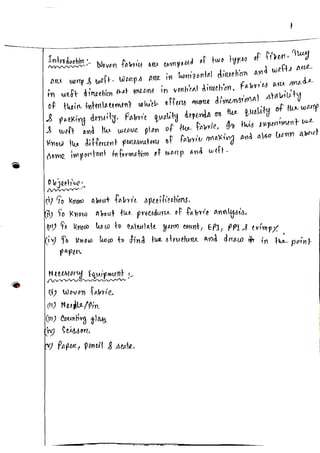 1
Introduction:- Woven fabrics are composed of two types of fiber. They
are warp & weft. Warps are in horizontal direction and wefts are
in weft direction that means in vertical direction. Fabrics are made
of their interlacement which offers more dimensional stability
& packing density. Fabric quality depends on the quality of the warp
& weft and the weave plan of the fabric. In this experiment we
know the different parameters of fabric making and also learn about
some important information of warp and weft.
Objective:-
(i) To know about fabric specifications.
(ii) To know about the procedure of fabric analysis.
(iii) To know how to calculate yarn count, EPI, PPI & crimp%.
(iv) To know how to find the structure and draw it in the point
paper.
Necessary Equipment :-
(i) Woven fabric.
(ii) Needle/Pin
(iii) Counting glass
(iv) Scissors.
(v) Paper, Pencil & scale.